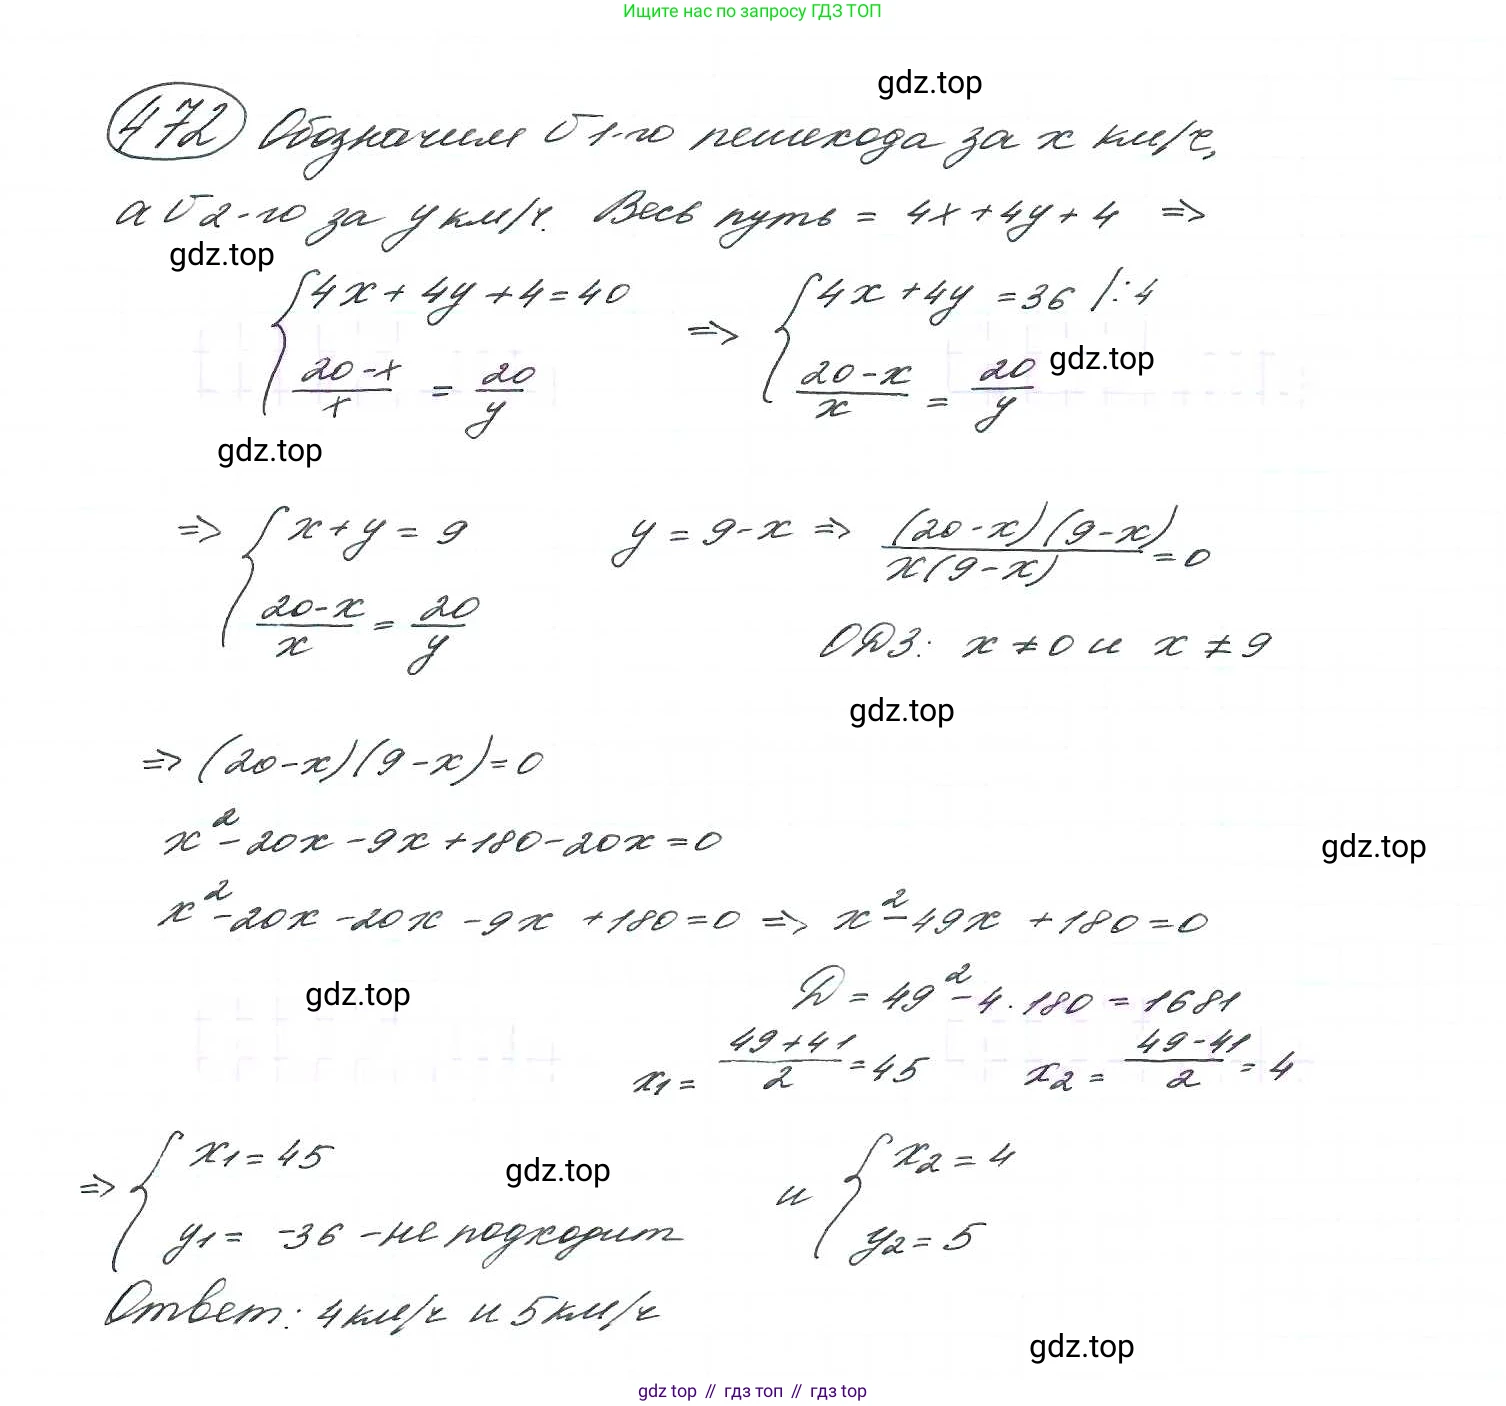 Ищите нас по запросу ГДЗ ТОП
gdz.top
472 Обозначим V 1-го пешехода за x км/ч,
а V 2-го за y км/ч. Весь путь = 4x+4y+4 =>
gdz.top
{4x+4y+4=40 => {4x+4y=36 /:4
(20-x)/x = 20/y (20-x)/x = 20/y gdz.top
gdz.top
=> {x+y=9 y=9-x => (20-x)(9-x)/x(9-x)=0
(20-x)/x = 20/y ОДЗ: x≠0 и x≠9
gdz.top
=> (20-x)(9-x)=0
x²-20x-9x+180-20x=0
gdz.top
x²-20x-20x-9x+180=0 => x²-49x+180=0
gdz.top
D=49²-4·180=1681
x1=(49+41)/2=45 x2=(49-41)/2=4
=> {x1=45 и {x2=4
gdz.top
y1=-36 -не подходит y2=5
Ответ: 4км/ч и 5км/ч
gdz.top
gdz top // гдз топ // гдз top